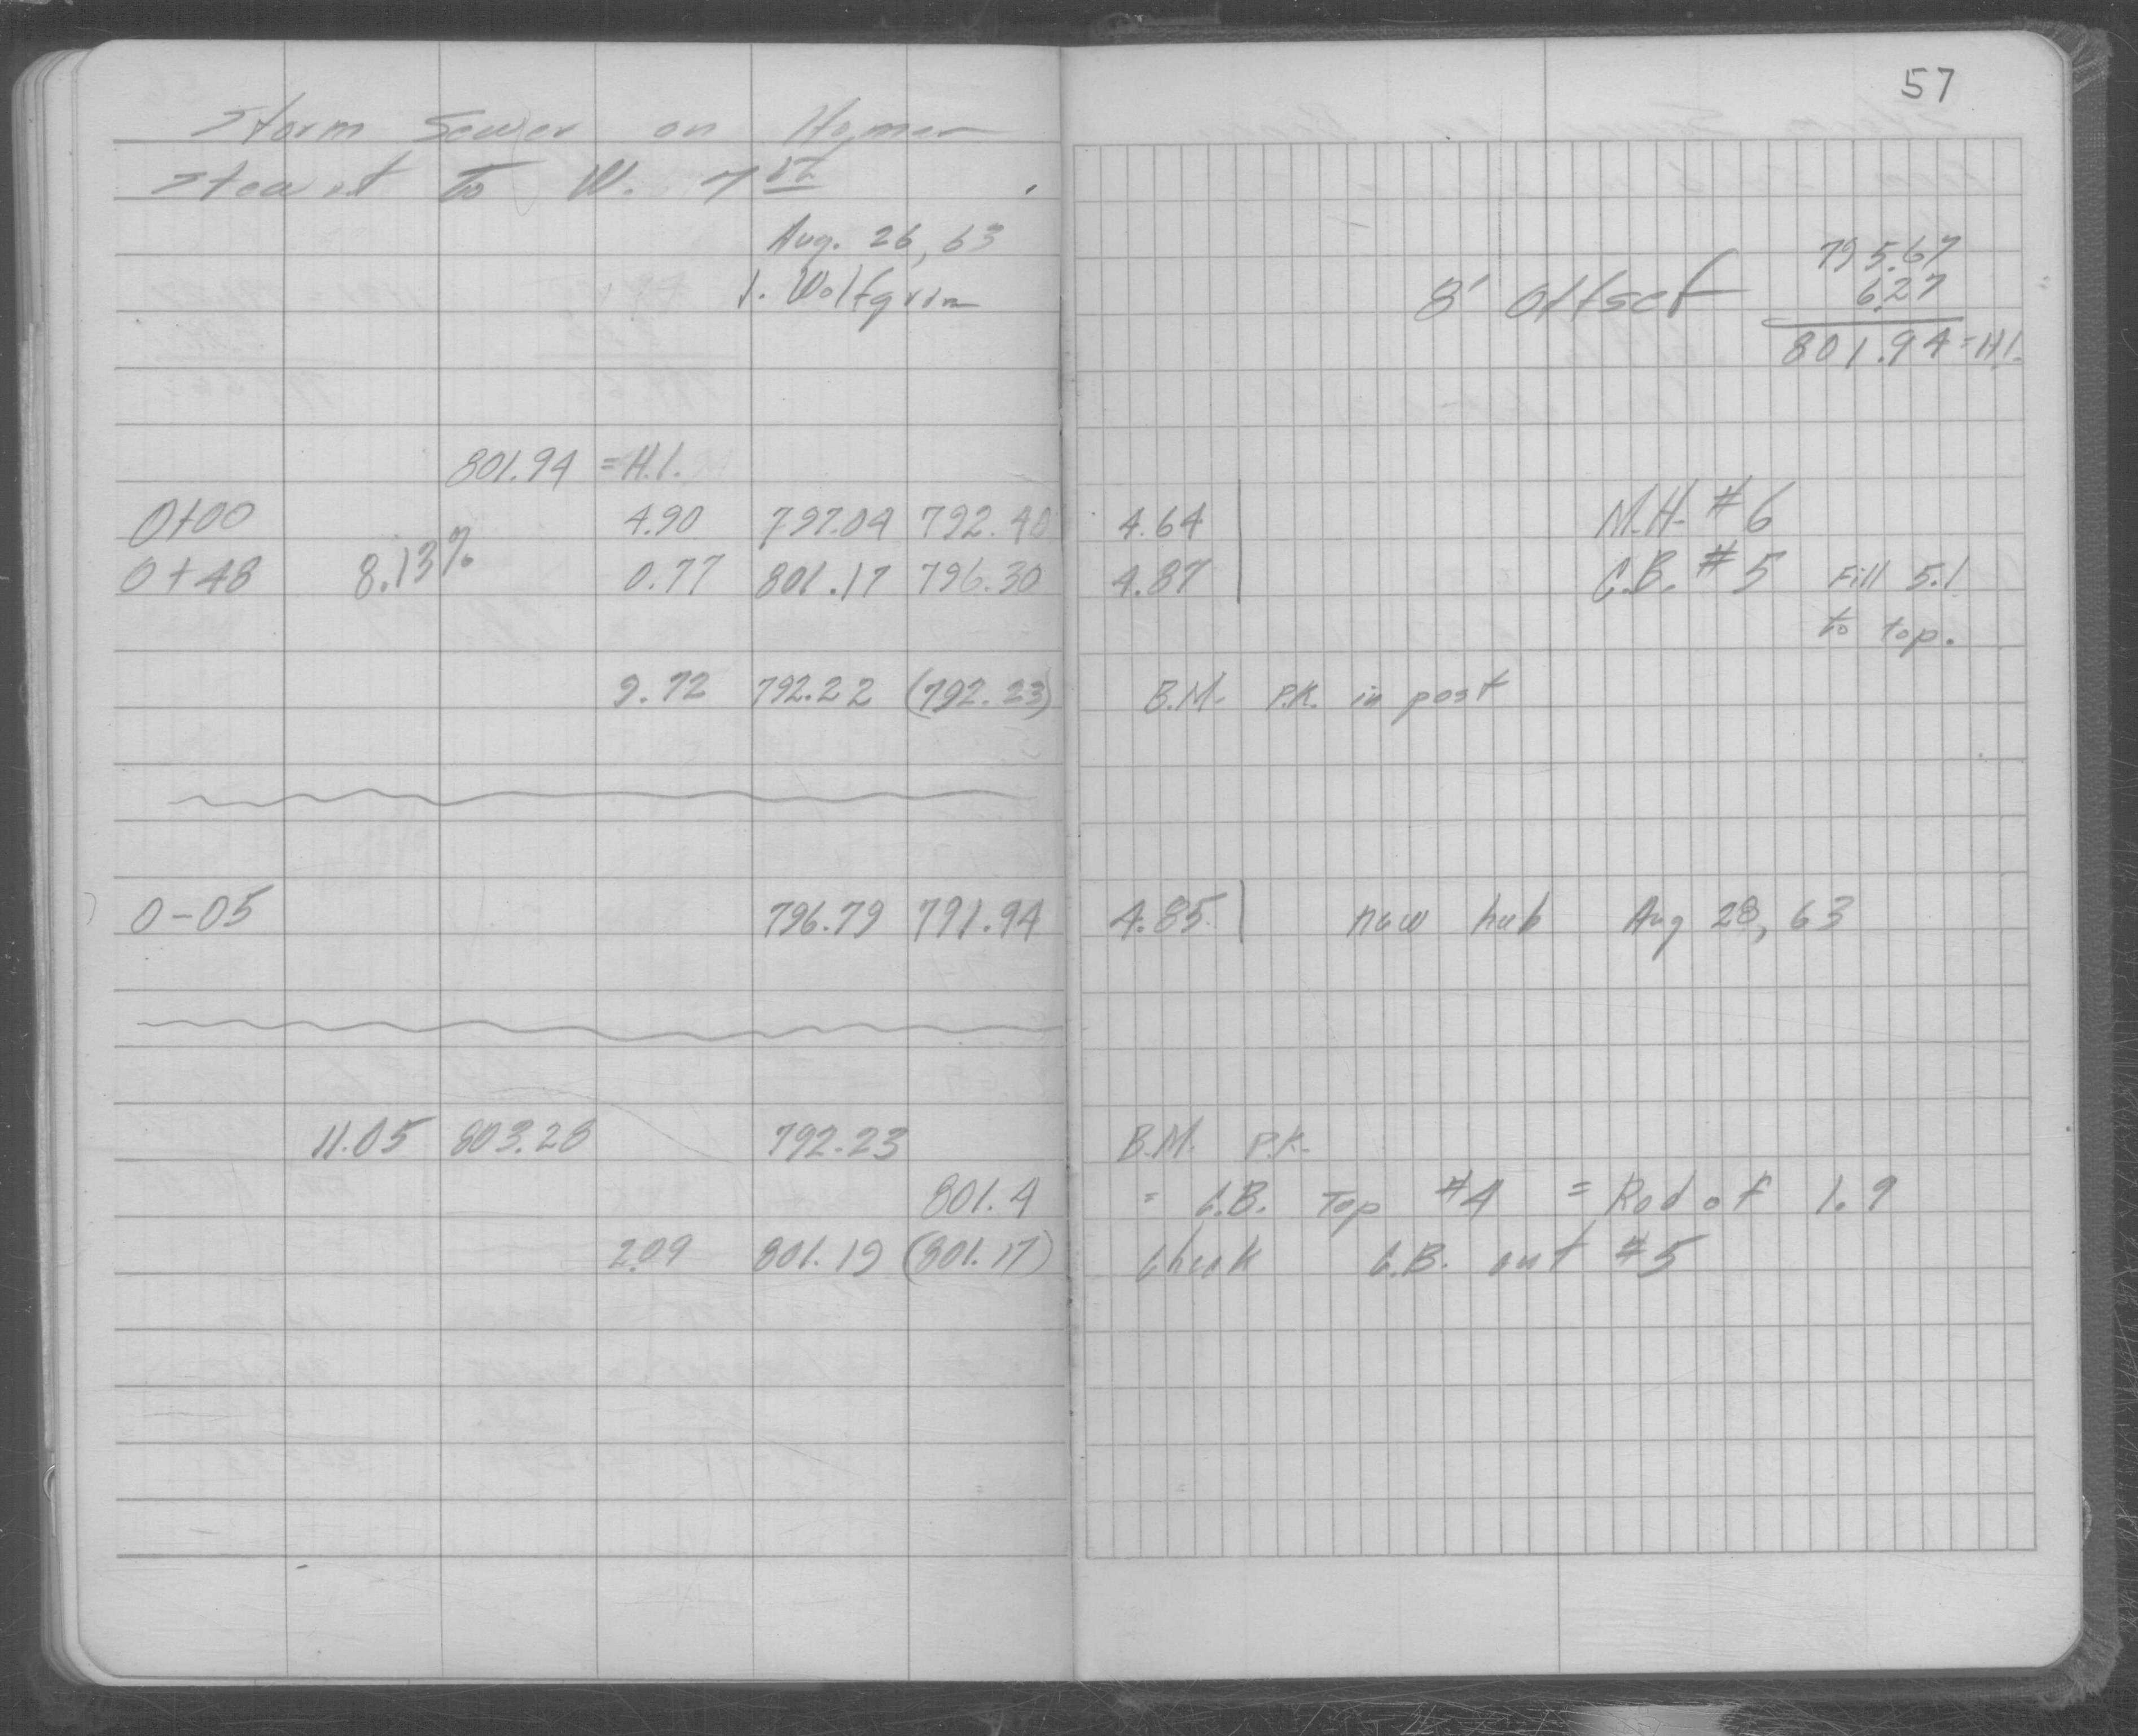 57
Storm Sewer on Homer
Stewart To W. 7th
Aug. 26, 63
J. Wolfgram
8' Offset
795.67
6.27
801.94 = H.I.
801.94 = H.I.
0+00 4.90 797.04 792.40 4.64 M.H. #6
0+48 8.13% 0.77 801.17 796.30 4.87 C.B. #5 Fill 5.1
to top.
9.72 792.22 (792.23) B.M. P.K. in post
0-05 796.79 791.94 4.85 new hub Aug 28, 63
11.05 803.28 792.23 B.M. P.K.
801.4 = C.B. Top #4 = Rod of 1.9
2.09 801.19 (801.17) Check C.B. cut #5